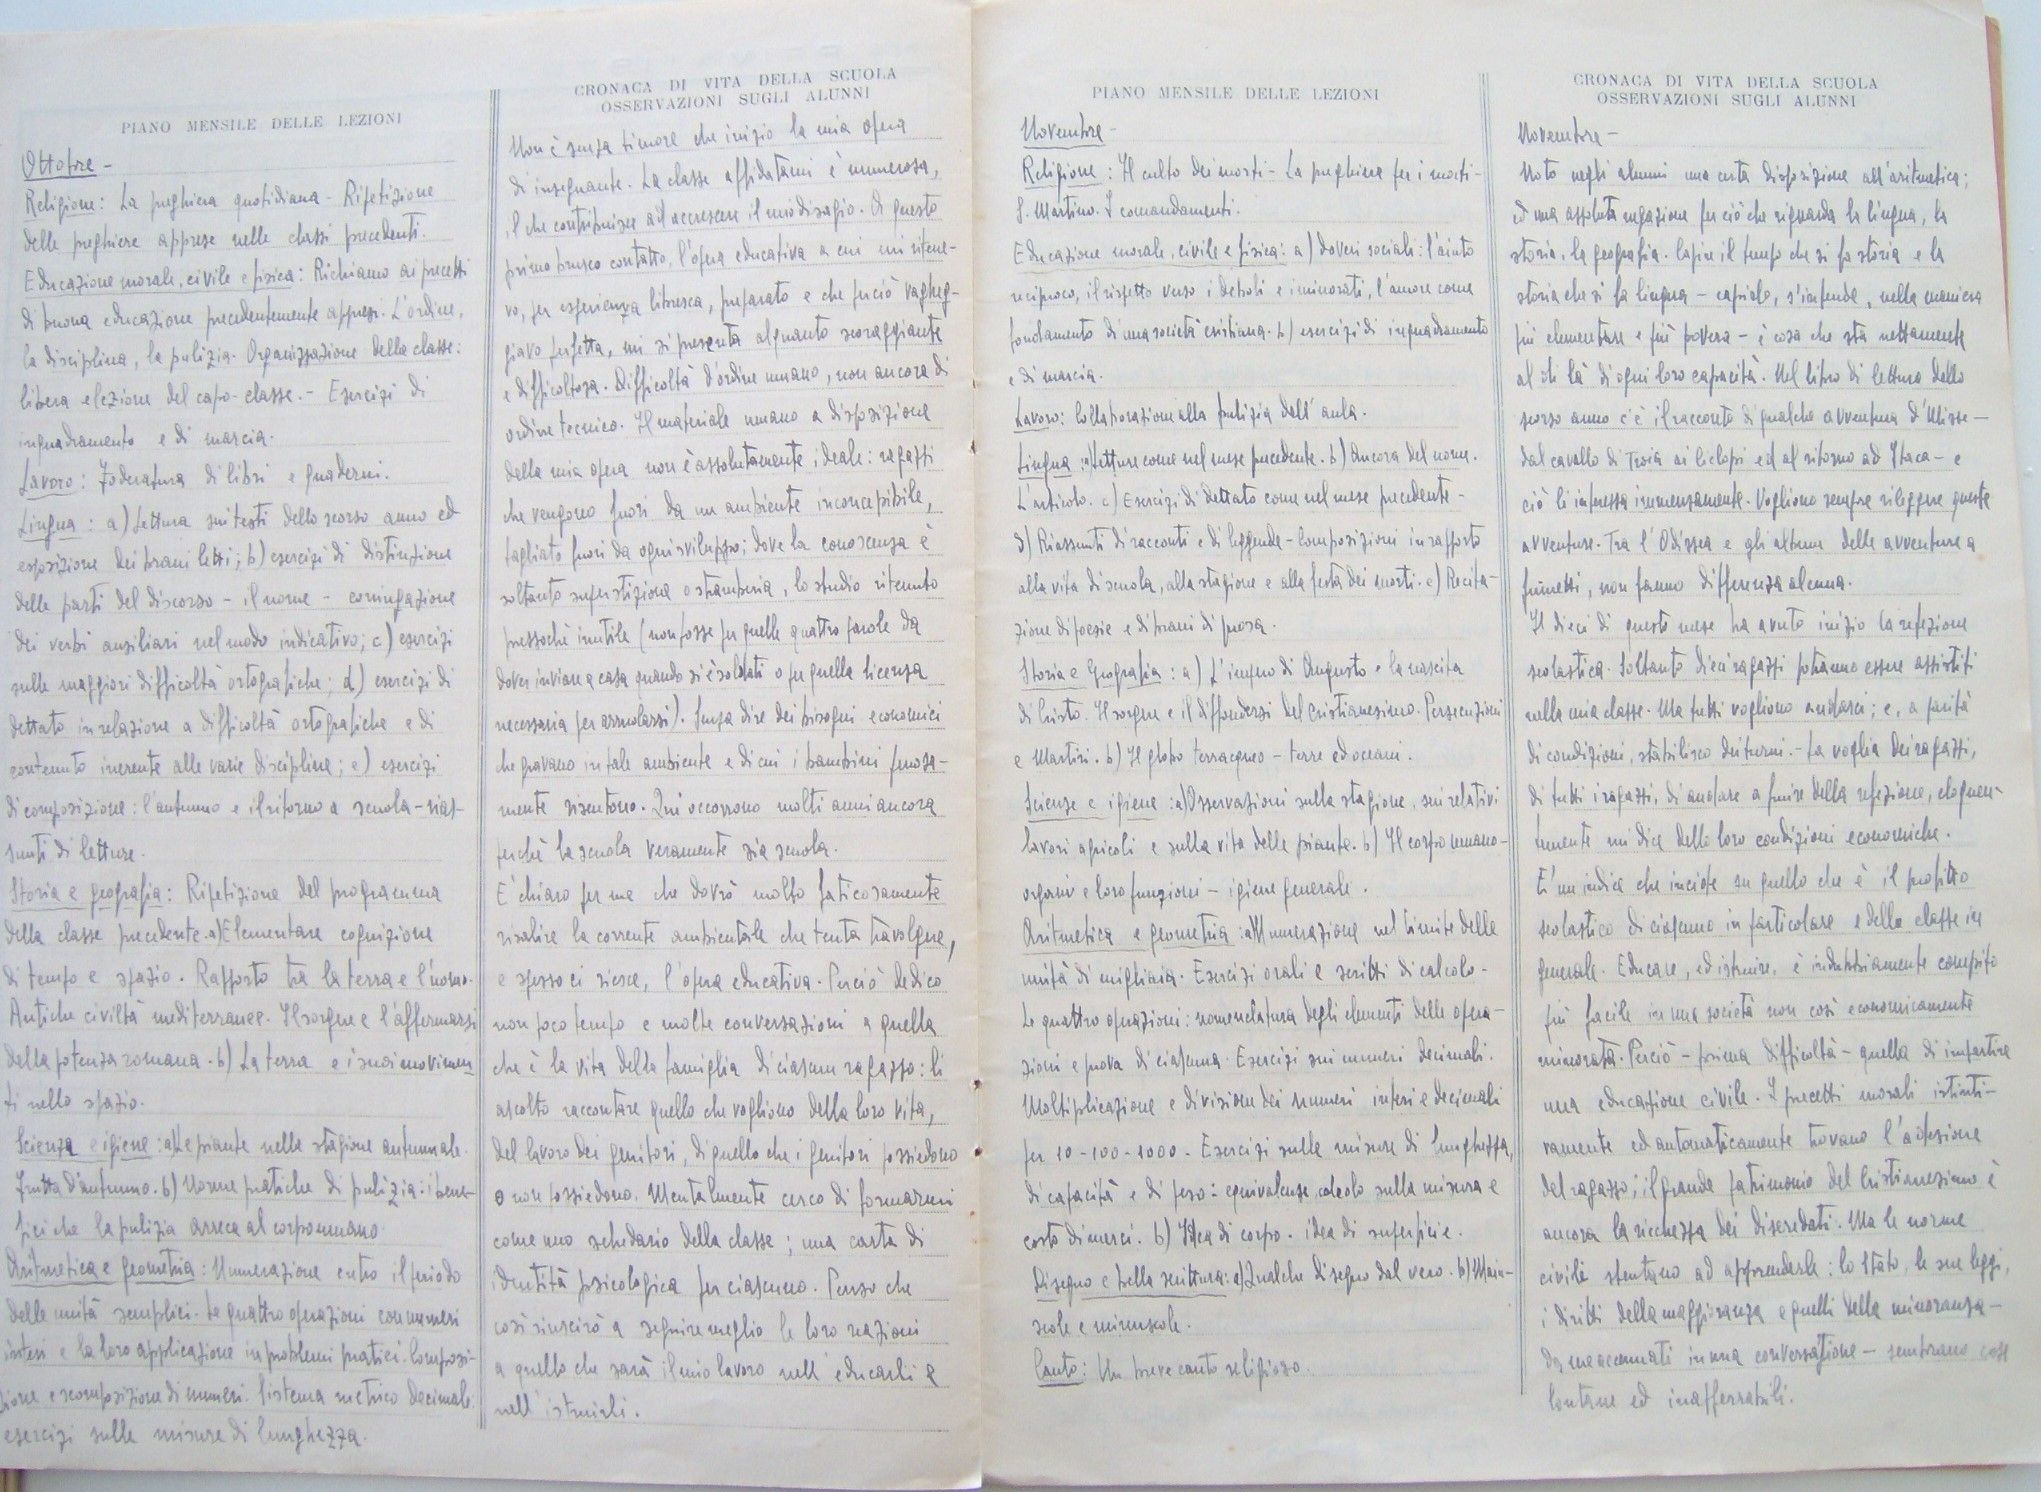 PIANO MENSILE DELLE LEZIONI
Ottobre -
Religione: La preghiera quotidiana - Ripetizione
delle preghiere apprese nelle classi precedenti.
Educazione morale, civile e fisica: Richiamo ai precetti
di buona educazione precedentemente appresi. L'ordine,
la disciplina, la pulizia. Organizzazione della classe:
libera elezione del capo-classe. - Esercizi di
inquadramento e di marcia.
Lavoro: Foderatura di libri e quaderni.
Lingua: a) Lettura sui testi dello scorso anno ed
esposizione dei brani letti; b) esercizi di distinzione
delle parti del discorso - il nome - coniugazione
dei verbi ausiliari nel modo indicativo; c) esercizi
sulle maggiori difficoltà ortografiche; d) esercizi di
dettato in relazione a difficoltà ortografiche e di
contenuto inerente alle varie discipline; e) esercizi
di composizione: l'autunno e il ritorno a scuola - rias-
sunti di letture.
Storia e geografia: Ripetizione del programma
della classe precedente. a) Elementare cognizione
di tempo e spazio. Rapporto tra la terra e l'uomo.
Antiche civiltà mediterranee. Il sorgere e l'affermarsi
della potenza romana. b) La terra e i suoi movimen
ti nello spazio.
Scienza e igiene: a) Le piante nella stagione autunnale.
Frutta d'autunno. b) Norme pratiche di pulizia: i bene-
fici che la pulizia arreca al corpo umano.
Aritmetica e geometria: Numerazione entro il periodo
delle unità semplici. Le quattro operazioni con numeri
interi e la loro applicazione in problemi pratici. Composi-
zione e scomposizione di numeri. Sistema metrico decimale.
esercizi sulle misure di lunghezza.
CRONACA DI VITA DELLA SCUOLA
OSSERVAZIONI SUGLI ALUNNI
Non è senza timore che inizio la mia opera
di insegnante. La classe affidatami è numerosa,
il che contribuisce ad accrescere il mio disagio. A questo
primo brusco contatto, l'opera educativa a cui mi ritene-
vo, per esperienza libresca, preparato e che perciò vagheg-
giavo perfetta, mi si presenta alquanto scoraggiante
e difficoltosa. Difficoltà d'ordine umano, non ancora di
ordine tecnico. Il materiale umano a disposizione
della mia opera non è assolutamente ideale: ragazzi
che vengono fuori da un ambiente inconcepibile,
tagliato fuori da ogni sviluppo; dove la conoscenza è
soltanto superstizione o stamberia, lo studio ritenuto
pressochè inutile (non fosse per quelle quattro parole da
dover inviare a casa quando si è soldati o per quella licenza
necessaria per arruolarsi). Senza dire dei bisogni economici
che gravano in tale ambiente e di cui i bambini penosa-
mente risentono. Qui occorrono molti anni ancora
perchè la scuola veramente sia scuola.
E' chiaro per me che dovrò molto faticosamente
risalire la corrente ambientale che tenta travolgere,
e spesso ci riesce, l'opera educativa. Perciò dedico
non poco tempo e molte conversazioni a quella
che è la vita della famiglia di ciascun ragazzo: li
ascolto raccontare quello che vogliono della loro vita,
del lavoro dei genitori, di quello che i genitori possiedono
o non possiedono. Mentalmente cerco di formarmi
come uno schedario della classe; una carta di
identità psicologica per ciascuno. Penso che
così riuscirò a seguire meglio le loro reazioni
a quello che sarà il mio lavoro nell'educarli e
nell'istruirli.
PIANO MENSILE DELLE LEZIONI
Novembre -
Religione: Il culto dei morti - La preghiera per i morti -
S. Martino. I comandamenti.
Educazione morale, civile e fisica: a) doveri sociali: l'aiuto
reciproco, il rispetto verso i deboli e i minorati, l'amore come
fondamento di una società cristiana. b) esercizi di inquadramento
e di marcia.
Lavoro: Collaborazione alla pulizia dell'aula.
Lingua: a) Letture come nel mese precedente. b) Ancora del nome.
L'articolo. c) Esercizi di dettato come nel mese precedente -
d) Riassunti di racconti e di leggende - Composizioni in rapporto
alla vita di scuola, alla stagione e alla festa dei morti. e) Recita-
zione di poesie e di brani di prosa.
Storia e Geografia: a) L'impero di Augusto e la nascita
di Cristo. Il sorgere e il diffondersi del cristianesimo. Persecuzioni
e Martiri. b) Il globo terracqueo - terre ed oceani.
Scienze e igiene: a) Osservazioni sulla stagione, sui relativi
lavori agricoli e sulla vita delle piante. b) Il corpo umano -
organi e loro funzioni - igiene generale.
Aritmetica e geometria: a) Numerazione nel limite delle
unità di migliaia. Esercizi orali e scritti di calcolo -
Le quattro operazioni: nomenclatura degli elementi delle opera-
zioni e prova di ciascuna. Esercizi sui numeri decimali.
Moltiplicazione e divisione dei numeri interi e decimali
per 10 - 100 - 1000 - Esercizi sulle misure di lunghezza,
di capacità e di peso: equivalenze, calcolo sulla misura e
costo di merci. b) Idea di corpo. idea di superficie.
Disegno e bella scrittura: a) Qualche disegno dal vero. b) Maiu-
scole e minuscole.
Canto: Un breve canto religioso.
CRONACA DI VITA DELLA SCUOLA
OSSERVAZIONI SUGLI ALUNNI
Novembre -
Noto negli alunni una certa disposizione all'aritmetica;
ed una assoluta negazione per ciò che riguarda la lingua, la
storia, la geografia. Capire il tempo che si fa storia e la
storia che si fa lingua - capirlo, s'intende, nella maniera
più elementare e più povera - è cosa che sta nettamente
al di là di ogni loro capacità. Nel libro di lettura dello
scorso anno c'è il racconto di qualche avventura d'Ulisse -
dal cavallo di Troia ai Ciclopi ed al ritorno ad Itaca - e
ciò li interessa immensamente. Vogliono sempre rileggere queste
avventure. Tra l'Odissea e gli albume delle avventure a
fumetti, non fanno differenza alcuna.
Il dieci di questo mese ha avuto inizio la refezione
scolastica. Soltanto dieci ragazzi potranno essere assistiti
nella mia classe. Ma tutti vogliono andarci; e, a parità
di condizioni, stabilisco dei turni. - La voglia dei ragazzi,
di tutti i ragazzi, di andare a fruire della refezione, eloquen-
temente mi dice delle loro condizioni economiche.
E' un indice che incide su quello che è il profitto
scolastico di ciascuno in particolare e della classe in
generale. Educare, ed istruire, è indubbiamente compito
più facile in una società non così economicamente
minorata. Perciò - prima difficoltà - quella di impartire
una educazione civile. I precetti morali istinti-
vamente ed automaticamente trovano l'adesione
del ragazzo; il grande patrimonio del Cristianesimo è
ancora la ricchezza dei diseredati. Ma le norme
civili stentano ad apprenderle: lo Stato, le sue leggi,
i diritti della maggioranza e quelli della minoranza -
da me accennati in una conversazione - sembrano cose
lontane ed inafferrabili.